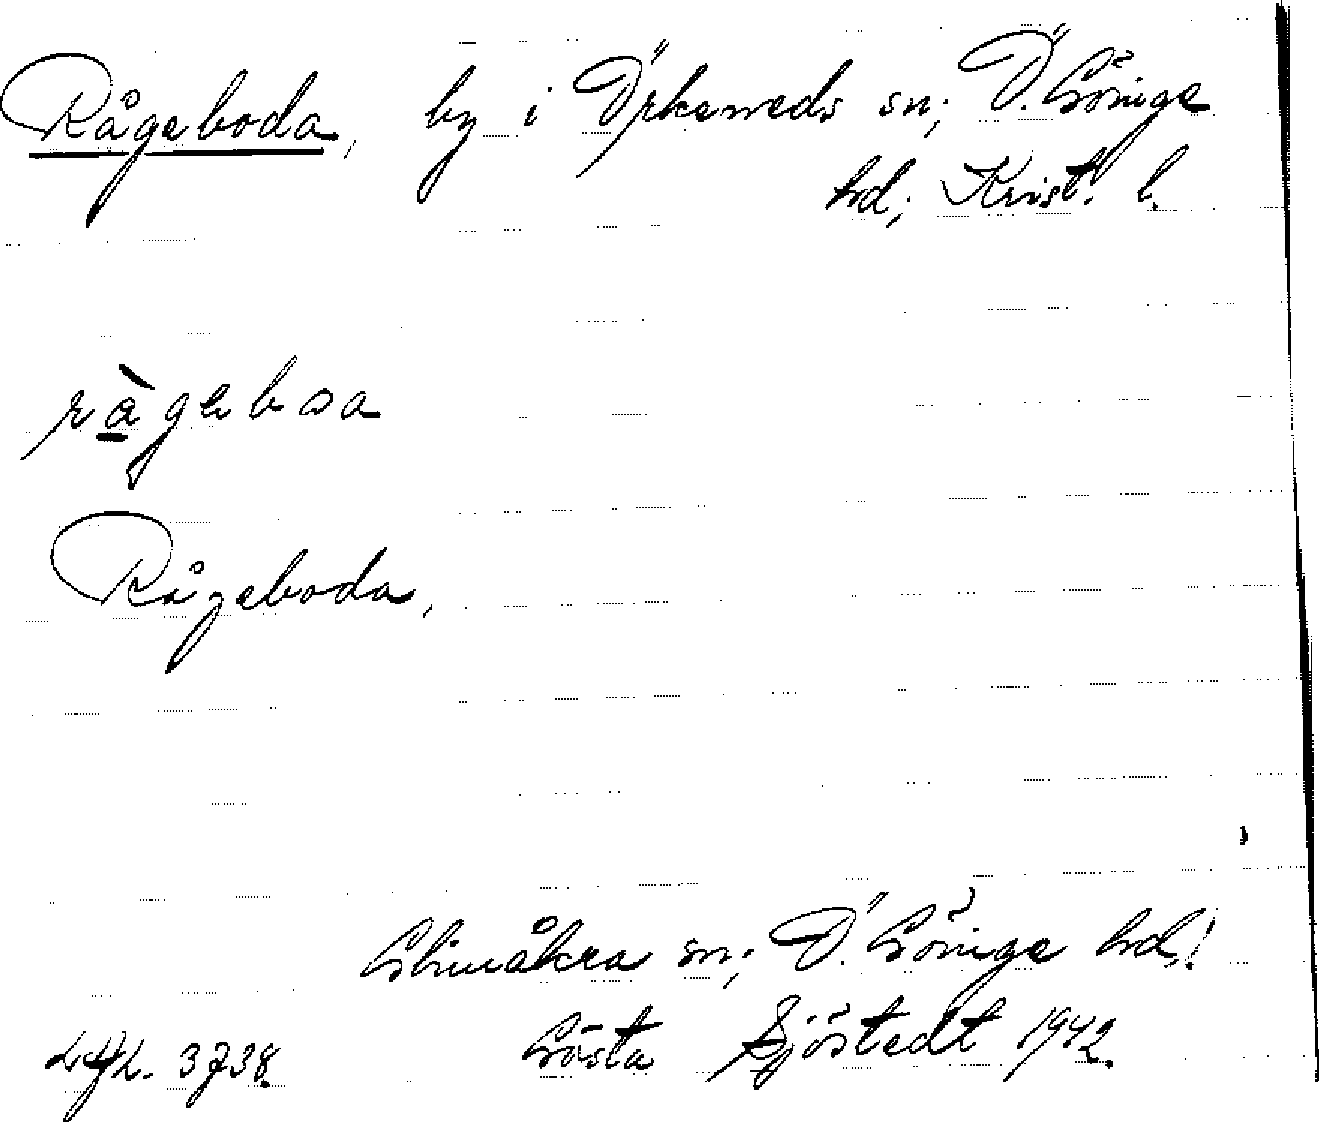 Rågeboda, by i Örkeneds sn; Ö. Göinge
hd; Krist. l.
ràgeboa
Rågeboda,
Glimåkra sn; Ö. Göinge hd!
3738. Gösta Sjöstedt 1942.